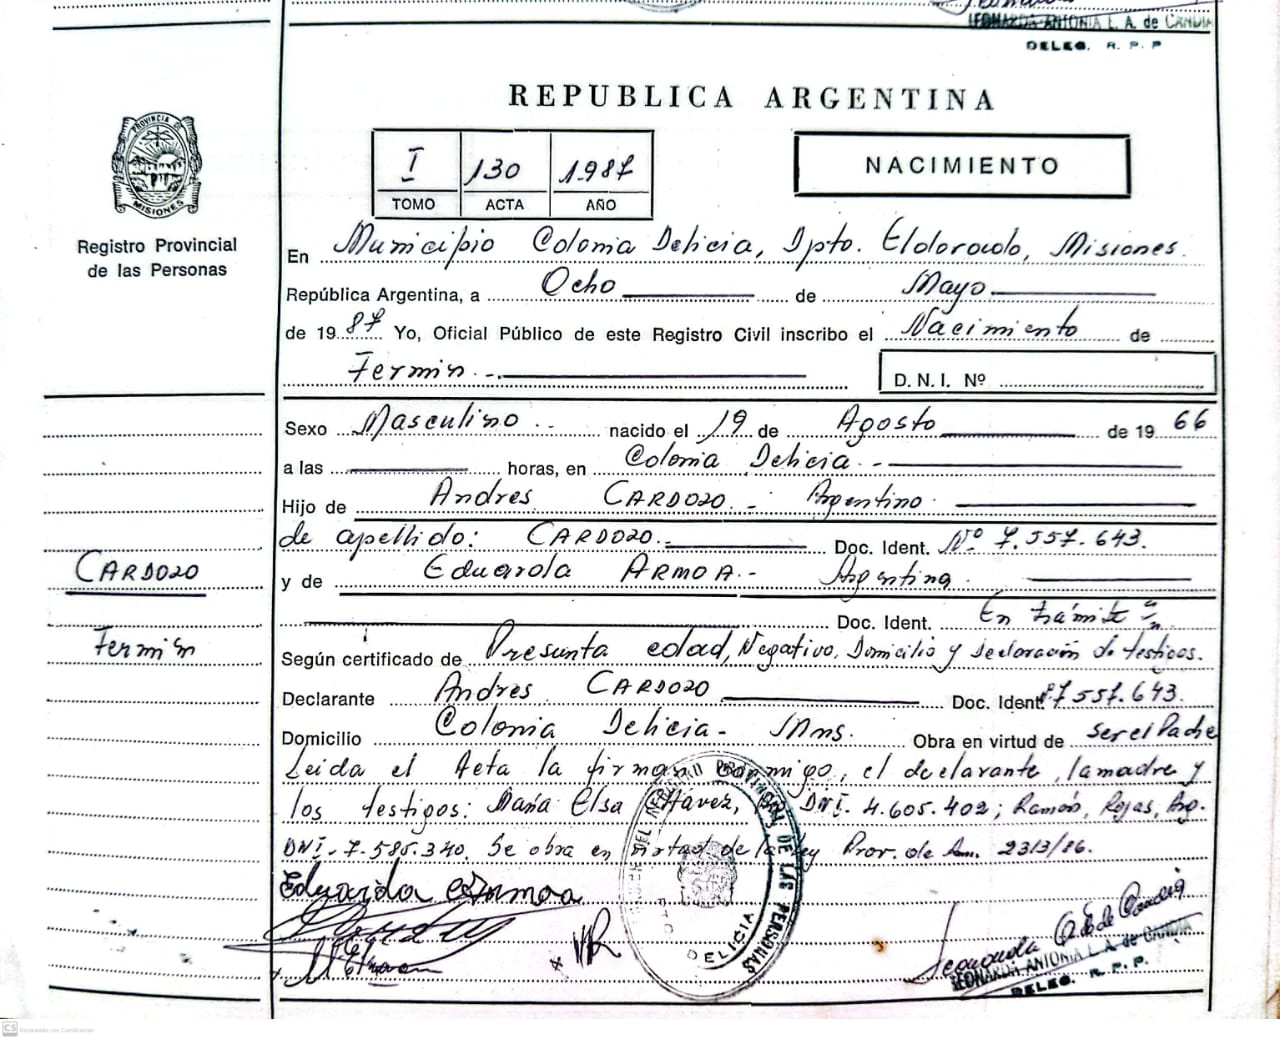 LEONARDA ANTONIA L. A. de CANDIA
DELEG. R. P. P
REPUBLICA ARGENTINA
PROVINCIA DE
MISIONES
Registro Provincial
de las Personas
I 130 1987
TOMO ACTA AÑO
NACIMIENTO
En Municipio Colonia Delicia, Dpto. Eldorado, Misiones.
República Argentina, a Ocho de Mayo
de 1987 Yo, Oficial Público de este Registro Civil inscribo el Nacimiento de
Fermin.-
D. N. I. Nº
Sexo Masculino.. nacido el 19 de Agosto de 1966
a las horas, en Colonia Delicia.-
Hijo de Andres CARDOZO.- Argentino.
de apellido: CARDOZO.- Doc. Ident. Nº 7.557.643.
CARDOZO
y de Eduarda ARMOA.- Argentina.
Doc. Ident. En trámite
Fermin
Según certificado de Presunta edad, Negativo, Domicilio y Declaración de testigos.
Declarante Andres CARDOZO Doc. Ident. 7.557.643.
Domicilio Colonia Delicia- Mnes. Obra en virtud de ser el Padre
Leida el Acta la firman conmigo, el declarante, la madre y
los testigos: Maria Elsa Chávez, DNI. 4.605.402; Ramón, Rojas, Arg.
DNI-7.585.340. Se obra en virtud de la ley Prov. de Am. 2313/86.
Eduarda Armoa
REGISTRO PROVINCIAL DE LAS PERSONAS
DELICIA
LEONARDA ANTONIA L. A. de CANDIA
DELEG. R. P. P.
CS Escaneado con CamScanner